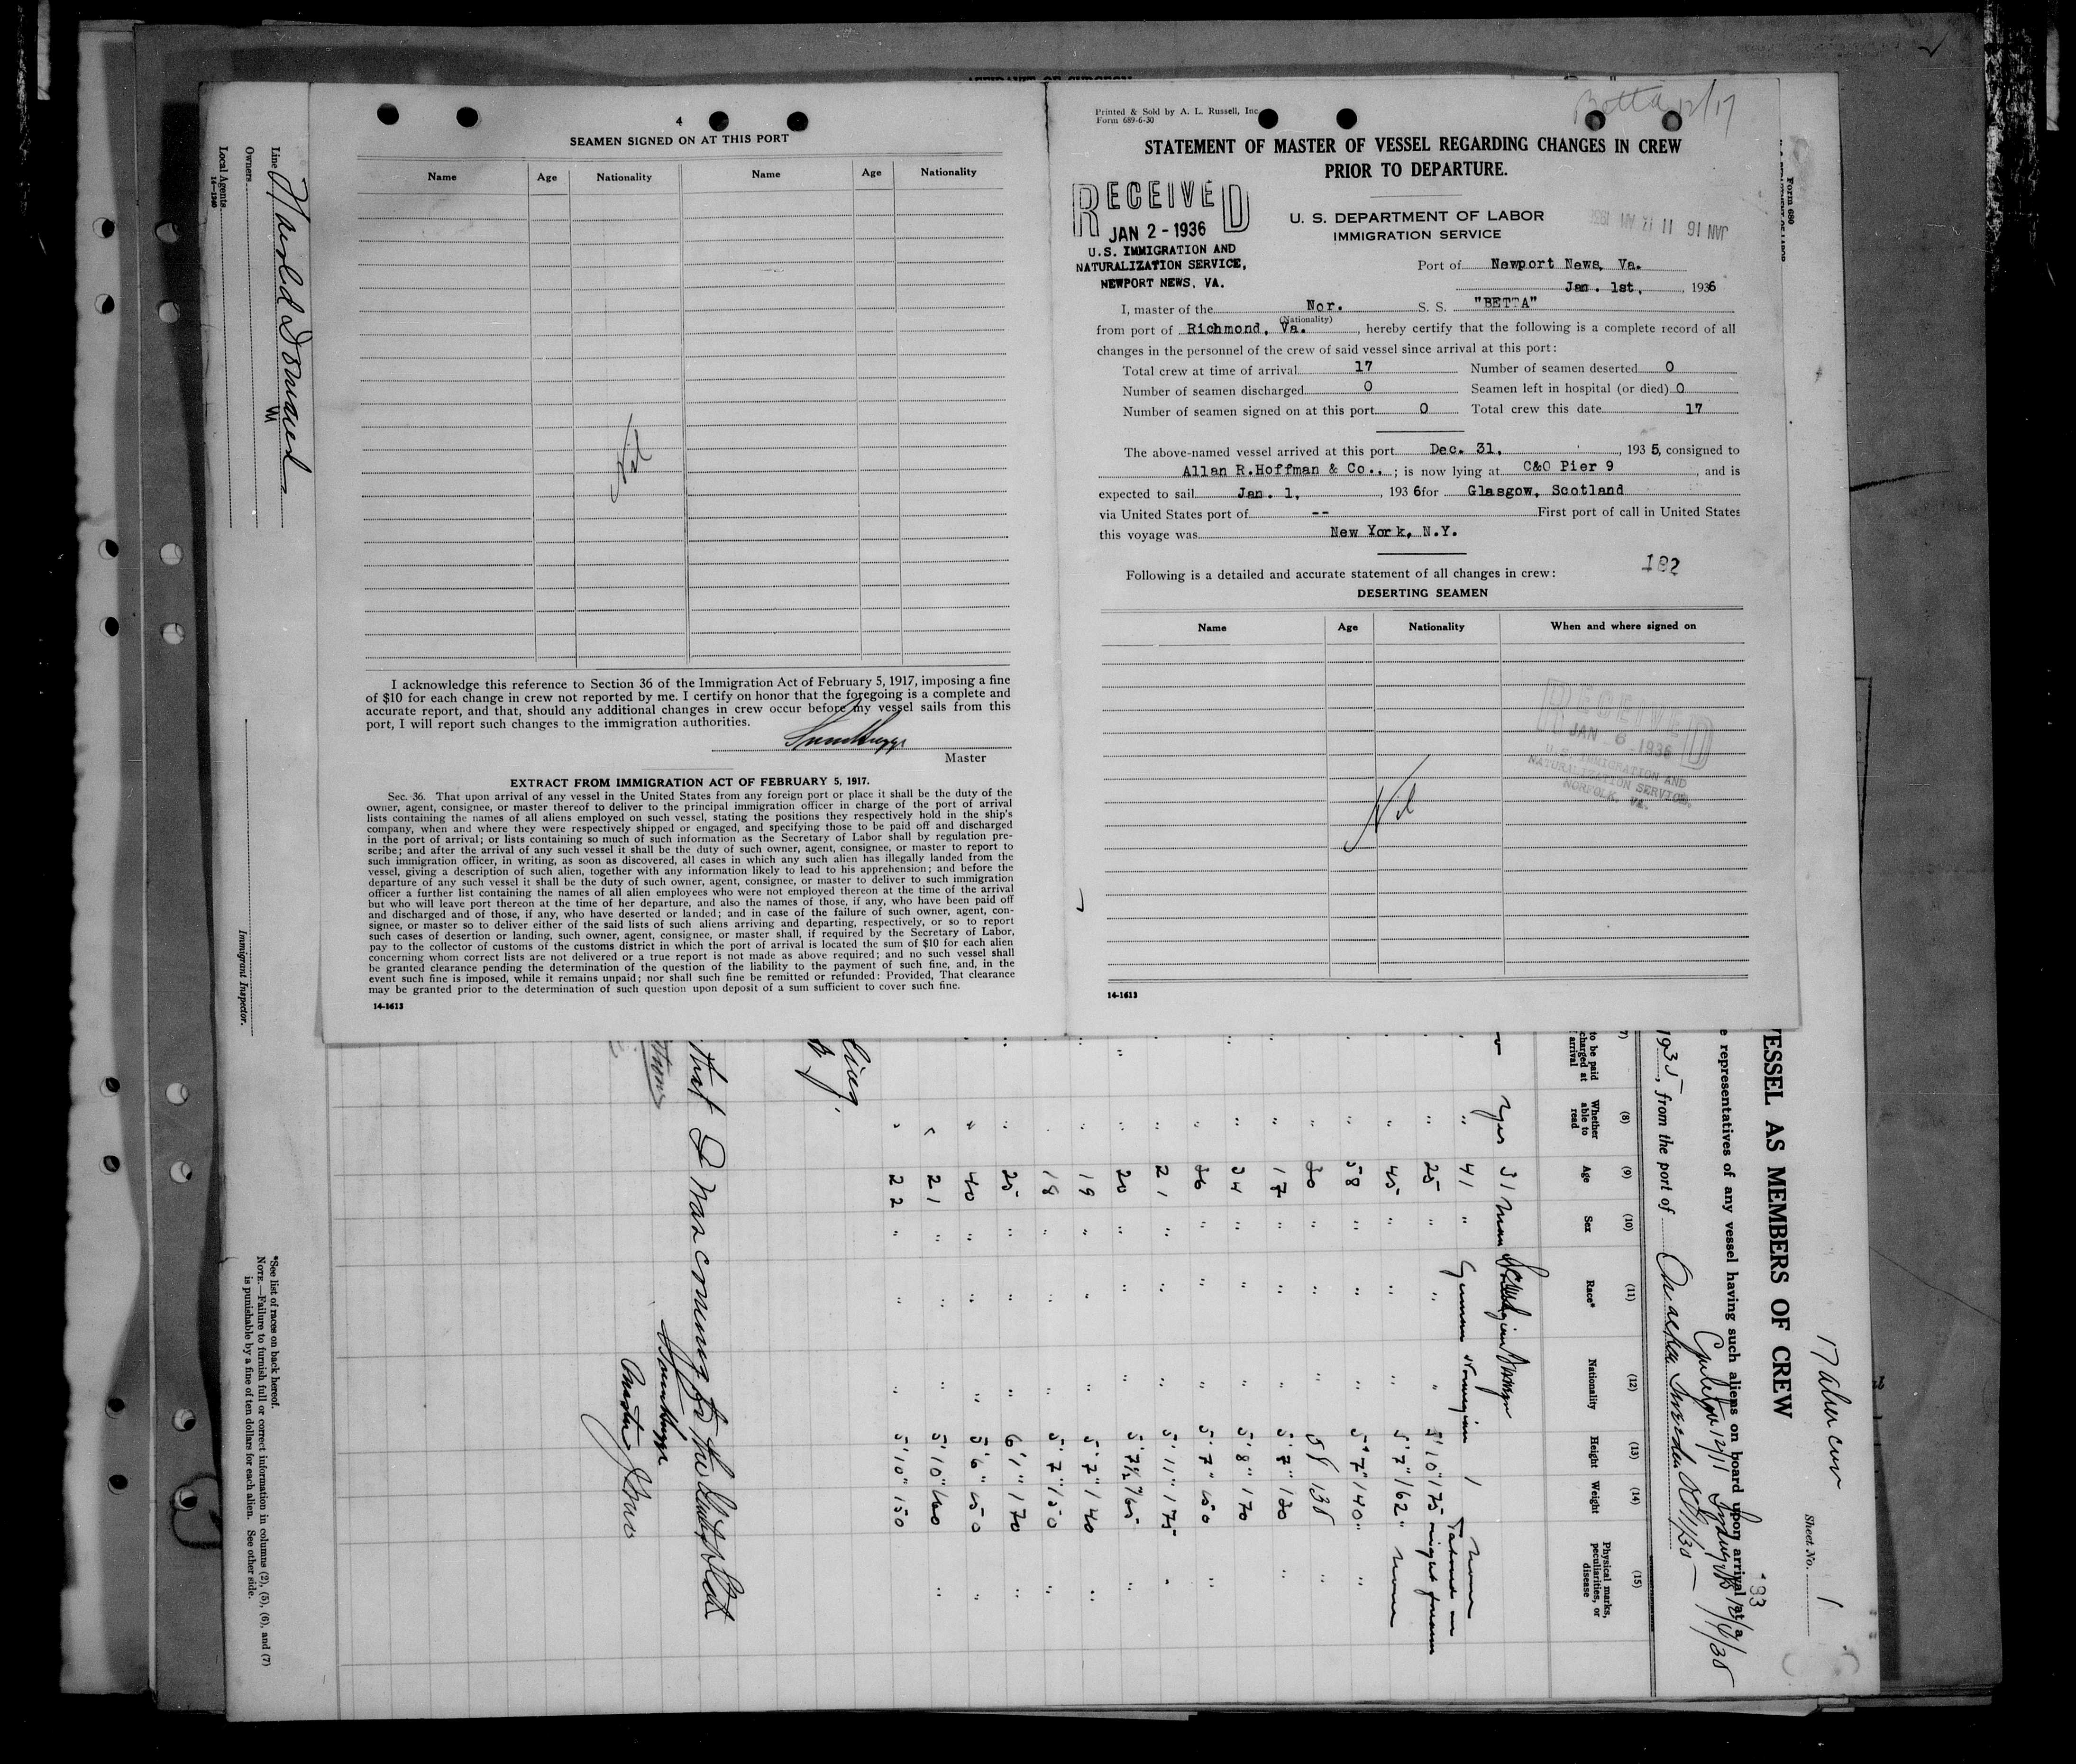 4
SEAMEN SIGNED ON AT THIS PORT
Name Age Nationality Name Age Nationality
Nil
I acknowledge this reference to Section 36 of the Immigration Act of February 5, 1917, imposing a fine
of $10 for each change in crew not reported by me. I certify on honor that the foregoing is a complete and
accurate report, and that, should any additional changes in crew occur before my vessel sails from this
port, I will report such changes to the immigration authorities.
Master
EXTRACT FROM IMMIGRATION ACT OF FEBRUARY 5, 1917.
Sec. 36. That upon arrival of any vessel in the United States from any foreign port or place it shall be the duty of the
owner, agent, consignee, or master thereof to deliver to the principal immigration officer in charge of the port of arrival
lists containing the names of all aliens employed on such vessel, stating the positions they respectively hold in the ship's
company, when and where they were respectively shipped or engaged, and specifying those to be paid off and discharged
in the port of arrival; or lists containing so much of such information as the Secretary of Labor shall by regulation pre-
scribe; and after the arrival of any such vessel it shall be the duty of such owner, agent, consignee, or master to report to
such immigration officer, in writing, as soon as discovered, all cases in which any such alien has illegally landed from the
vessel, giving a description of such alien, together with any information likely to lead to his apprehension; and before the
departure of any such vessel it shall be the duty of such owner, agent, consignee, or master to deliver to such immigration
officer a further list containing the names of all alien employees who were not employed thereon at the time of the arrival
but who will leave port thereon at the time of her departure, and also the names of those, if any, who have been paid off
and discharged and of those, if any, who have deserted or landed; and in case of the failure of such owner, agent, con-
signee, or master so to deliver either of the said lists of such aliens arriving and departing, respectively, or so to report
such cases of desertion or landing, such owner, agent, consignee, or master shall, if required by the Secretary of Labor,
pay to the collector of customs of the customs district in which the port of arrival is located the sum of $10 for each alien
concerning whom correct lists are not delivered or a true report is not made as above required; and no such vessel shall
be granted clearance pending the determination of the question of the liability to the payment of such fine, and, in the
event such fine is imposed, while it remains unpaid; nor shall such fine be remitted or refunded: Provided, That clearance
may be granted prior to the determination of such question upon deposit of a sum sufficient to cover such fine.
14-1613
Printed & Sold by A. L. Russell, Inc.
Form 689-6-30
Betta 12/17
STATEMENT OF MASTER OF VESSEL REGARDING CHANGES IN CREW
PRIOR TO DEPARTURE.
RECEIVED
JAN 2 - 1936
U.S. IMMIGRATION AND
NATURALIZATION SERVICE,
NEWPORT NEWS, VA.
U. S. DEPARTMENT OF LABOR
IMMIGRATION SERVICE
JAN 16 11 AM
Port of Newport News, Va.
Jan. 1st, 1936
I, master of the Nor. S. S. "BETTA"
(Nationality)
from port of Richmond, Va. , hereby certify that the following is a complete record of all
changes in the personnel of the crew of said vessel since arrival at this port:
Total crew at time of arrival 17 Number of seamen deserted 0
Number of seamen discharged 0 Seamen left in hospital (or died) 0
Number of seamen signed on at this port 0 Total crew this date 17
The above-named vessel arrived at this port Dec. 31, , 1935, consigned to
Allan R.Hoffman & Co., ; is now lying at C&O Pier 9 , and is
expected to sail Jan. 1, , 1936 for Glasgow, Scotland
via United States port of -- First port of call in United States
this voyage was New York, N.Y.
182
Following is a detailed and accurate statement of all changes in crew:
DESERTING SEAMEN
Name Age Nationality When and where signed on
RECEIVED
JAN 6 - 1936
U.S. IMMIGRATION AND
NATURALIZATION SERVICE,
NORFOLK, Va.
Nil
14-1613
Form 680
17 alien crew
Sheet No. 1
183
VESSEL AS MEMBERS OF CREW
e representatives of any vessel having such aliens on board upon arrival at a
1935, from the port of
(8) (9) (10) (11) (12) (13) (14) (15)
to be paid
charged at
arrival
Whether
able to
read
Age Sex Race* Nationality Height Weight Physical marks,
peculiarities, or
disease
yes 31
" 41 " German Norwegian
" 25 " " " 5'10" 175
" 45 " " " 5'7" 162 " none
" 58 " " " 5'7" 140 "
" 30 " " 138 "
" 17 " " " 5'7" 130 "
" 34 " " " 5'8" 170
" 36 " " " 5'7" 150 "
" 21 " " " 5'11" 175 "
" 20 " " " 5'7½" 165 "
" 19 " " " 5'7" 140 "
" 18 " " " 5'7" 150 "
" 25 " " " 6'1" 170 "
" 40 " " " 5'6" 150 "
" 21 " " " 5'10" 160 "
" 22 " " " 5'10" 150
that I was coming to the United States
Line
Owners
Local Agents
14-1240
Immigrant Inspector.
*See list of races on back hereof.
NOTE.—Failure to furnish full or correct information in columns (2), (5), (6), and (7)
is punishable by a fine of ten dollars for each alien. See other side.